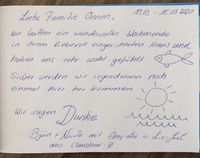 13.03 - 15.03.2020
Liebe Familie Onnen,
wir hatten ein wundervolles Wochenende
in Ihrem liebevoll eingerichteten Haus und
haben uns sehr wohl gefühlt
Sicher werden wir irgendwann noch
einmal hier her kommen
Wir sagen Danke
Björn + mit
aus Clausthal-Z